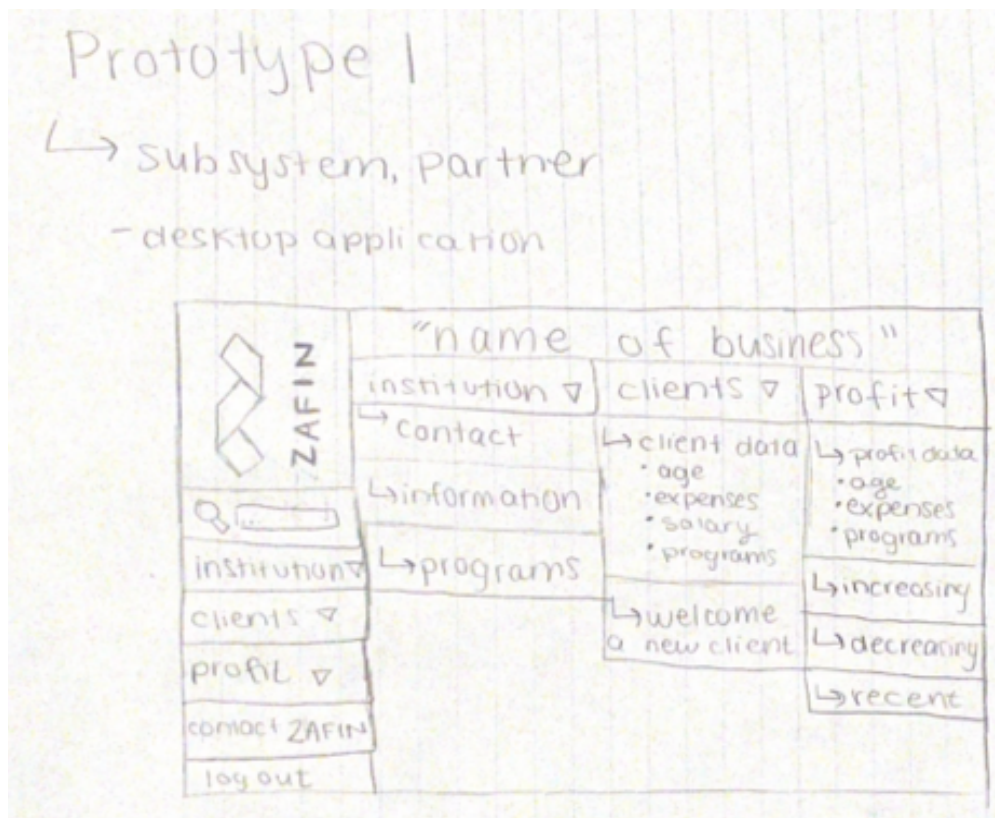 Prototype 1
↳ subsystem, partner
- desktop application
ZAFIN
institution ▽
clients ▽
profit ▽
contact ZAFIN
log out
"name of business"
institution ▽
↳ contact
↳ information
↳ programs
clients ▽
↳ client data
• age
• expenses
• salary
• programs
↳ welcome
a new client
profit ▽
↳ profit data
• age
• expenses
• programs
↳ increasing
↳ decreasing
↳ recent